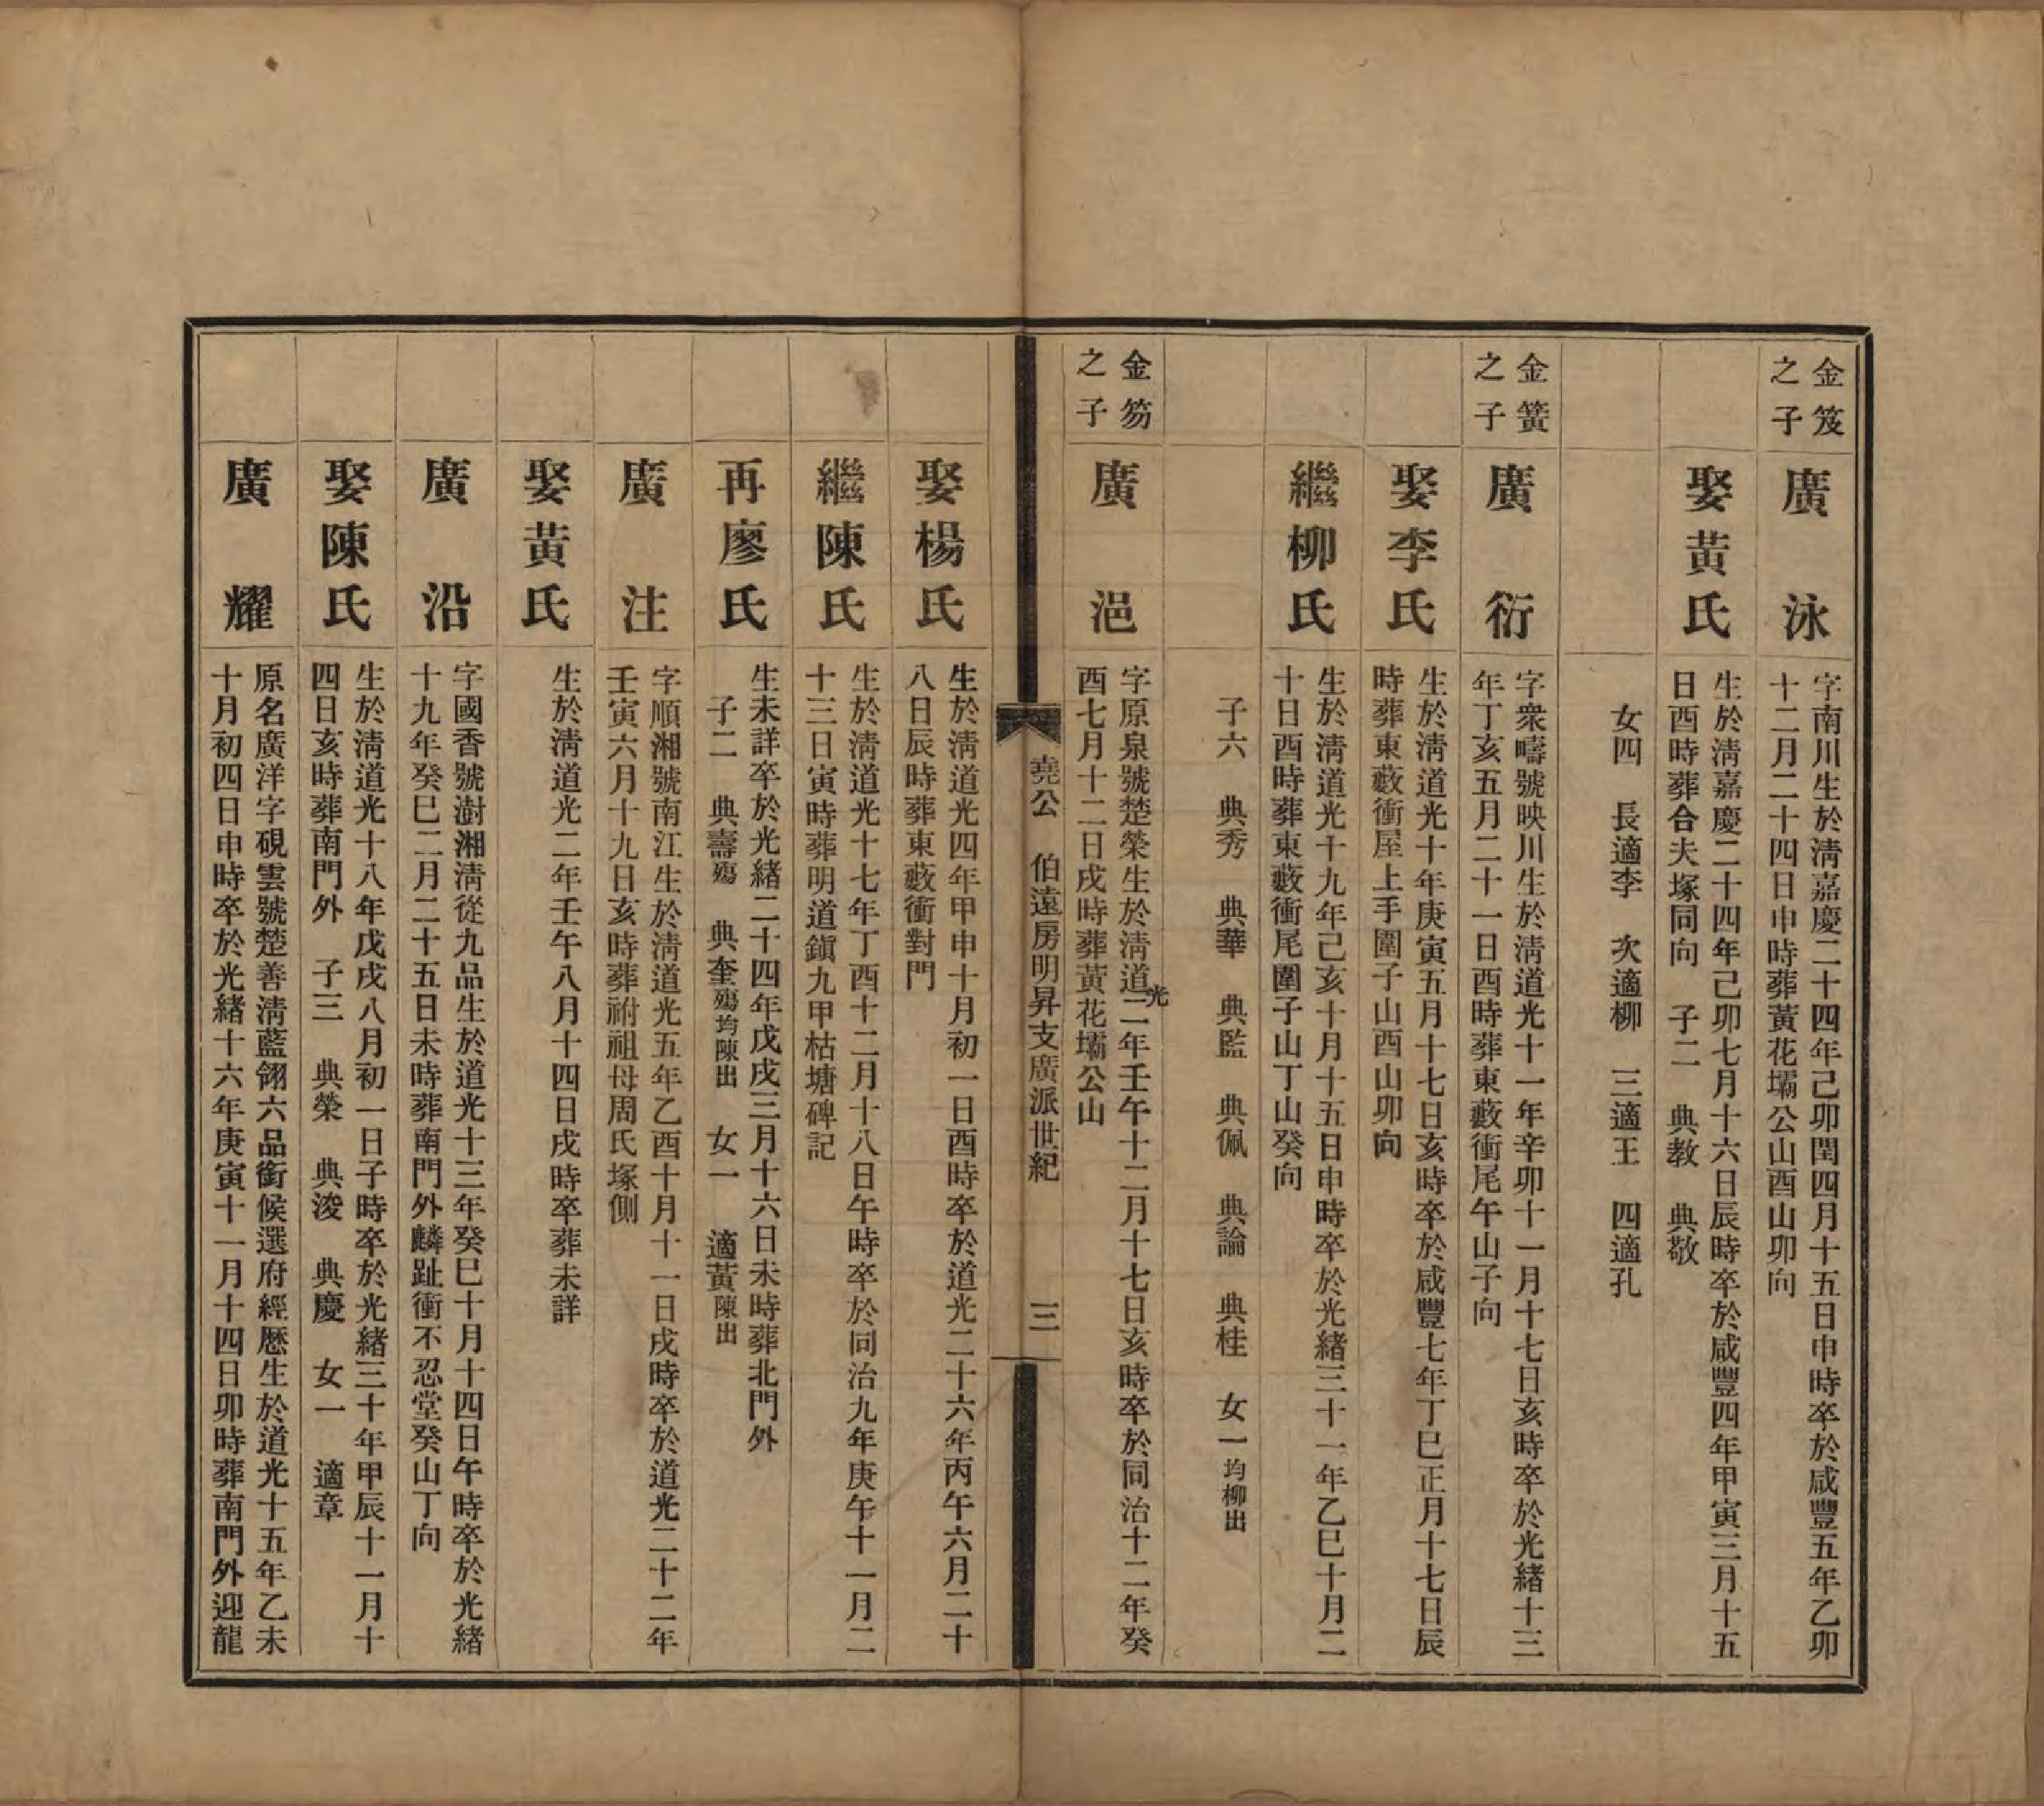 金笈
之子
廣泳
字南川生於淸嘉慶二十四年己卯閏四月十五日申時卒於咸豐五年乙卯
十二月二十四日申時葬黃花壩公山酉山卯向
娶黃氏
生於淸嘉慶二十四年己卯七月十六日辰時卒於咸豐四年甲寅三月十五
日酉時葬合夫塚同向　子二　典教　典敬
女四　長適李　次適柳　三適王　四適孔
金簧
之子
廣衍
字衆疇號映川生於淸道光十一年辛卯十一月十七日亥時卒於光緖十三
年丁亥五月二十一日酉時葬東藪衝尾午山子向
娶李氏
生於淸道光十年庚寅五月十七日亥時卒於咸豐七年丁巳正月十七日辰
時葬東藪衝屋上手圍子山酉山卯向
繼柳氏
生於淸道光十九年己亥十月十五日申時卒於光緖三十一年乙巳十月二
十日酉時葬東藪衝尾圍子山丁山癸向
子六　典秀　典華　典監　典佩　典論　典桂　女一均柳出
金笏
之子
廣浥
字原泉號楚榮生於淸道光二年壬午十二月十七日亥時卒於同治十二年癸
酉七月十二日戌時葬黃花壩公山
堯公　伯遠房明昇支廣派世紀　三
娶楊氏
生於淸道光四年甲申十月初一日酉時卒於道光二十六年丙午六月二十
八日辰時葬東藪衝對門
繼陳氏
生於淸道光十七年丁酉十二月十八日午時卒於同治九年庚午十一月二
十三日寅時葬明道鎭九甲枯塘碑記
再廖氏
生未詳卒於光緖二十四年戊戌三月十六日未時葬北門外
子二　典壽殤　典奎殤均陳出　女一　適黃陳出
廣注
字順湘號南江生於淸道光五年乙酉十月十一日戌時卒於道光二十二年
壬寅六月十九日亥時葬祔祖母周氏塚側
娶黃氏
生於淸道光二年壬午八月十四日戌時卒葬未詳
廣沿
字國香號澍湘淸從九品生於道光十三年癸巳十月十四日午時卒於光緖
十九年癸巳二月二十五日未時葬南門外麟趾衝不忍堂癸山丁向
娶陳氏
生於淸道光十八年戊戌八月初一日子時卒於光緖三十年甲辰十一月十
四日亥時葬南門外　子三　典榮　典浚　典慶　女一　適章
廣耀
原名廣洋字硯雲號楚善淸藍翎六品銜候選府經歷生於道光十五年乙未
十月初四日申時卒於光緖十六年庚寅十一月十四日卯時葬南門外迎龍